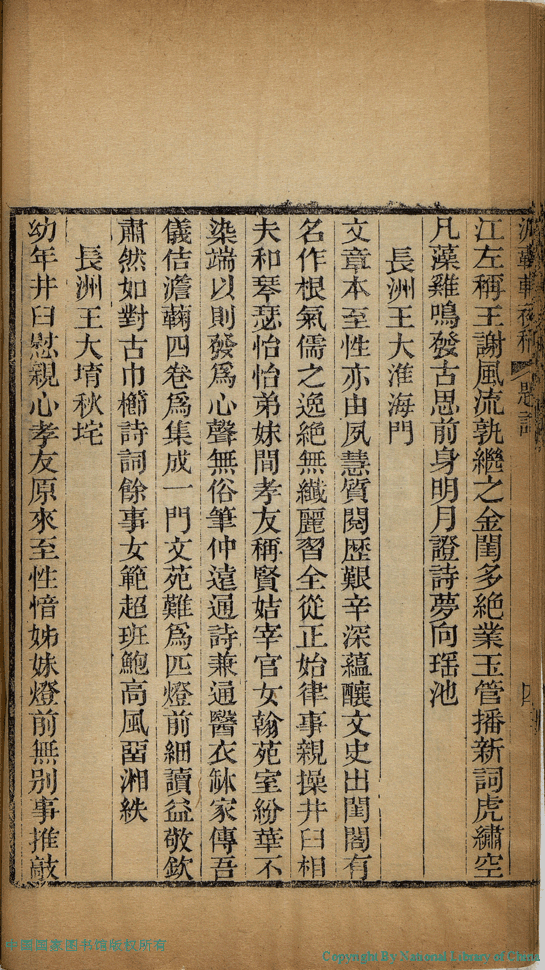 江左稱王謝風流孰繼之金閨多絶業玉管播新詞虎繡空
凡藻雞鳴發古思前身明月證詩夢向瑶池
長洲王大淮海門
文章本至性亦由夙慧質閱歷艱辛深蘊釀文史出閨閣有
名作根氣儒之逸絶無纖麗習全從正始律事親操井臼相
夫和琴瑟怡怡弟妹間孝友稱賢姞宰官女翰苑室紛華不
染端以則發爲心聲無俗筆仲遠通詩兼通醫衣缽家傳吾
儀佶澹蘜四卷爲集成一門文苑難爲匹燈前細讀益敬欽
肅然如對古巾櫛詩詞餘事女範超班鮑高風畱湘帙
長洲王大堉秋垞
幼年井臼慰親心孝友原來至性愔姊妹燈前無别事推敲
中國國家图书馆版权所有
Copyright By National Library of China